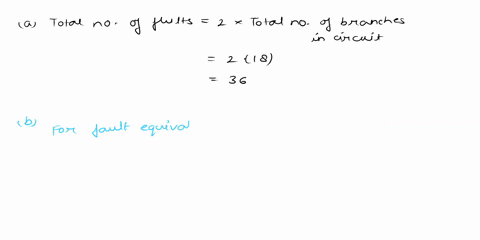 (a) Total no. of faults = 2 × Total no. of branches
in circuit
= 2 (18)
= 36
(b) For fault equiva